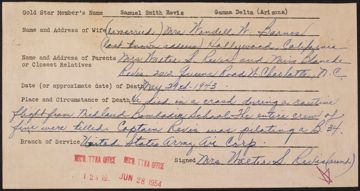 Gold Star Member's Name Samuel Smith Revis Gamma Delta (Arizona)
Name and Address of Wife (remarried) Mrs. Wendell W. Barnes
Last known address Hollywood, California
Name and Address of Parents Mrs. Walter S. Revis and Miss Blanche
or Closest Relatives Revis 2012 Queens Road W. Charlotte, N.C.
Date (or approximate date) of Death May 3rd 1943
Place and Circumstance of Death He died in a crash during a routine
flight from Midland Bombardier School. The entire crew of
five were killed. Captain Revis was piloting a B 34.
Branch of Service United States Army Air Corp.
RECD TYRA OFFICE RECD TYRA OFFICE
JUN 28 1954
Signed Mrs. Walter S. Revis